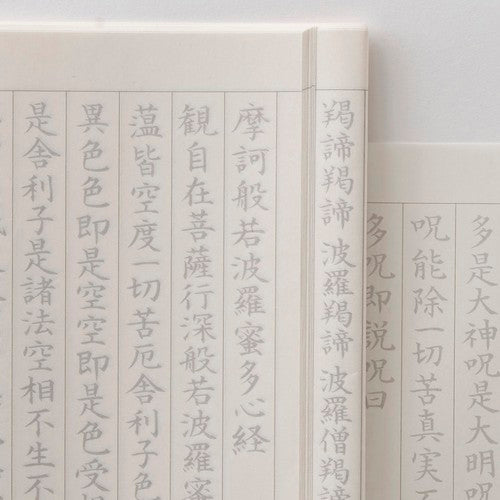 多是大神呪是大明呪
呪能除一切苦真実
多呪即説呪曰
羯諦羯諦波羅羯諦波羅僧羯諦
摩訶般若波羅蜜多心経
観自在菩薩行深般若波羅蜜
蘊皆空度一切苦厄舎利子色
異色色即是空空即是色受想
是舎利子是諸法空相不生不